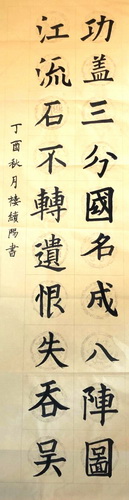 功盖三分國名成八陣圖
江流石不轉遺恨失吞吴
丁酉秋月楼續陽書